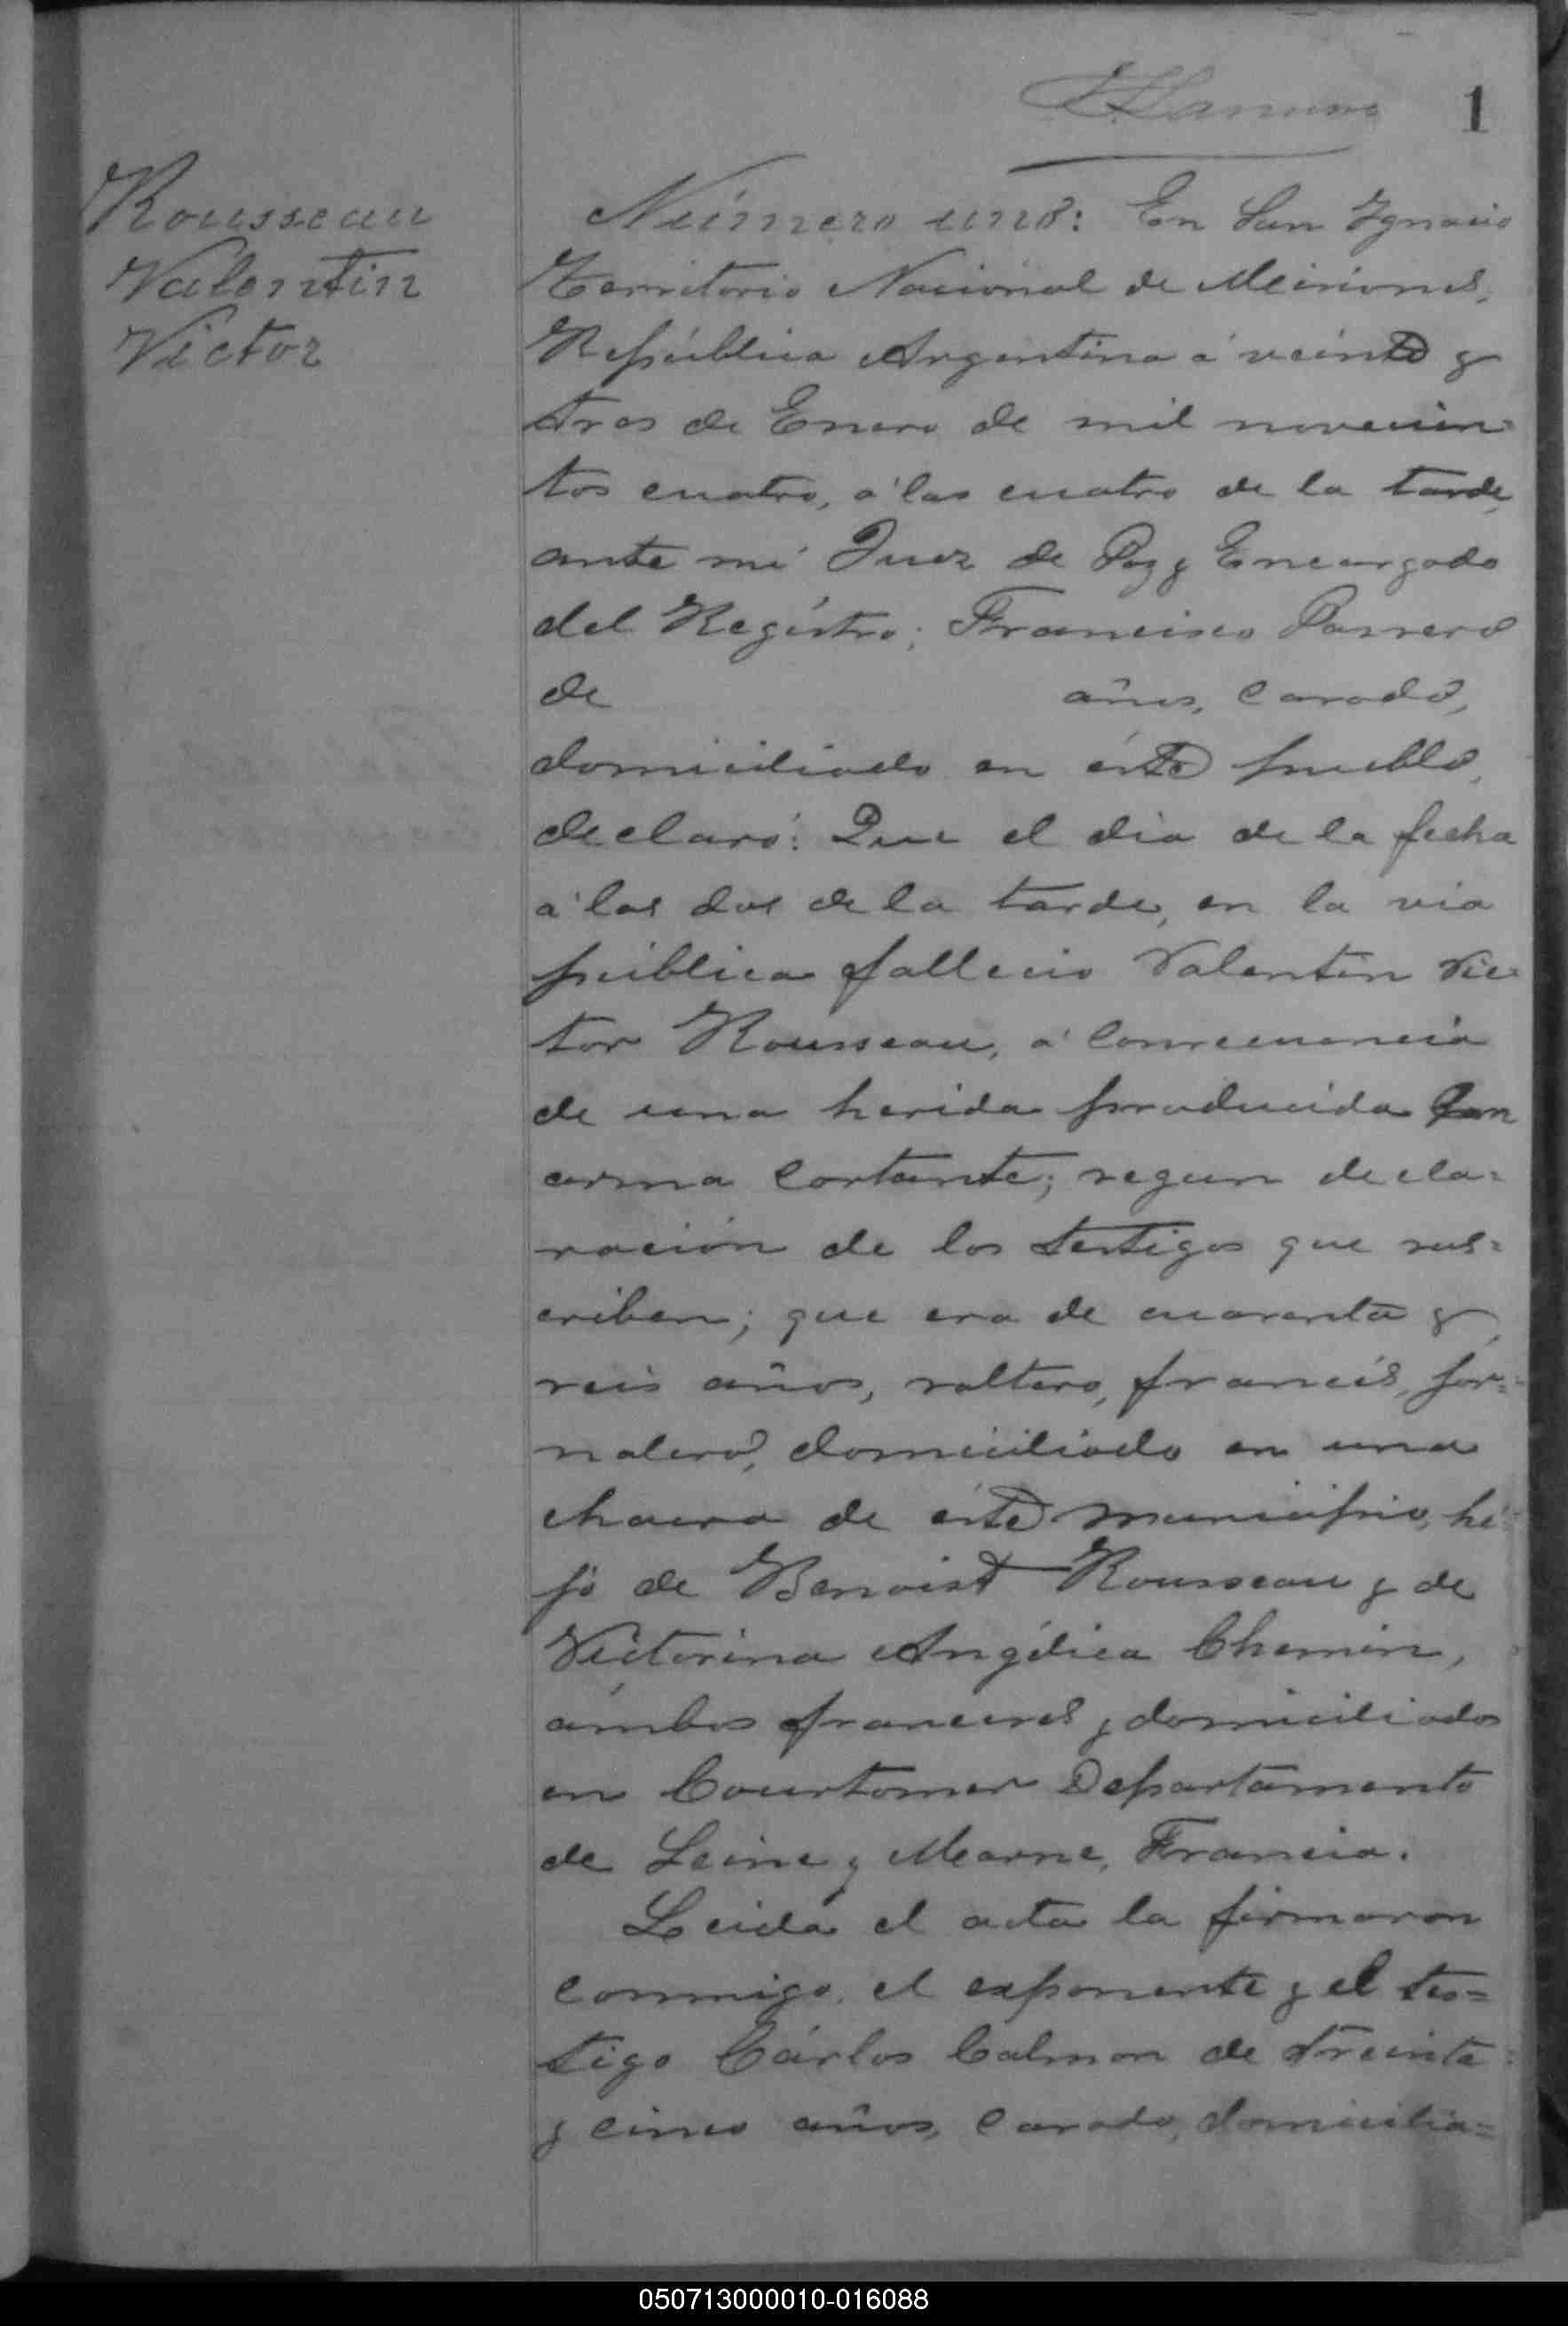 1
Rousseau
Valentin
Victor
Número uno: En San Ignacio
Territorio Nacional de Misiones,
República Argentina á veinte y
tres de Enero de mil novecien=
tos cuatro, á las cuatro de la tarde,
ante mí Juez de Paz y Encargado
del Registro; Francisco
de años, casado,
domiciliado en éste pueblo,
declaró: Que el dia de la fecha
á las dos de la tarde, en la via
pública falleció Valentin Vic=
tor Rousseau, á consecuencia
de una herida producida con
arma cortante; segun decla=
ración de los testigos que sus=
criben; que era de cuarenta y
seis años, soltero, francés, jor=
nalero, domiciliado en una
chacra de éste municipio, hi=
jo de Benoist Rousseau y de
Victorina Angélica Chemin,
ámbos franceses y domiciliados
en Courtomer Departamento
de Seine y Marne, Francia.
Leida el acta la firmaron
conmigo, el exponente y el tes=
tigo Cárlos Calmon de treinta
y cinco años, casado, domicilia=
050713000010-016088